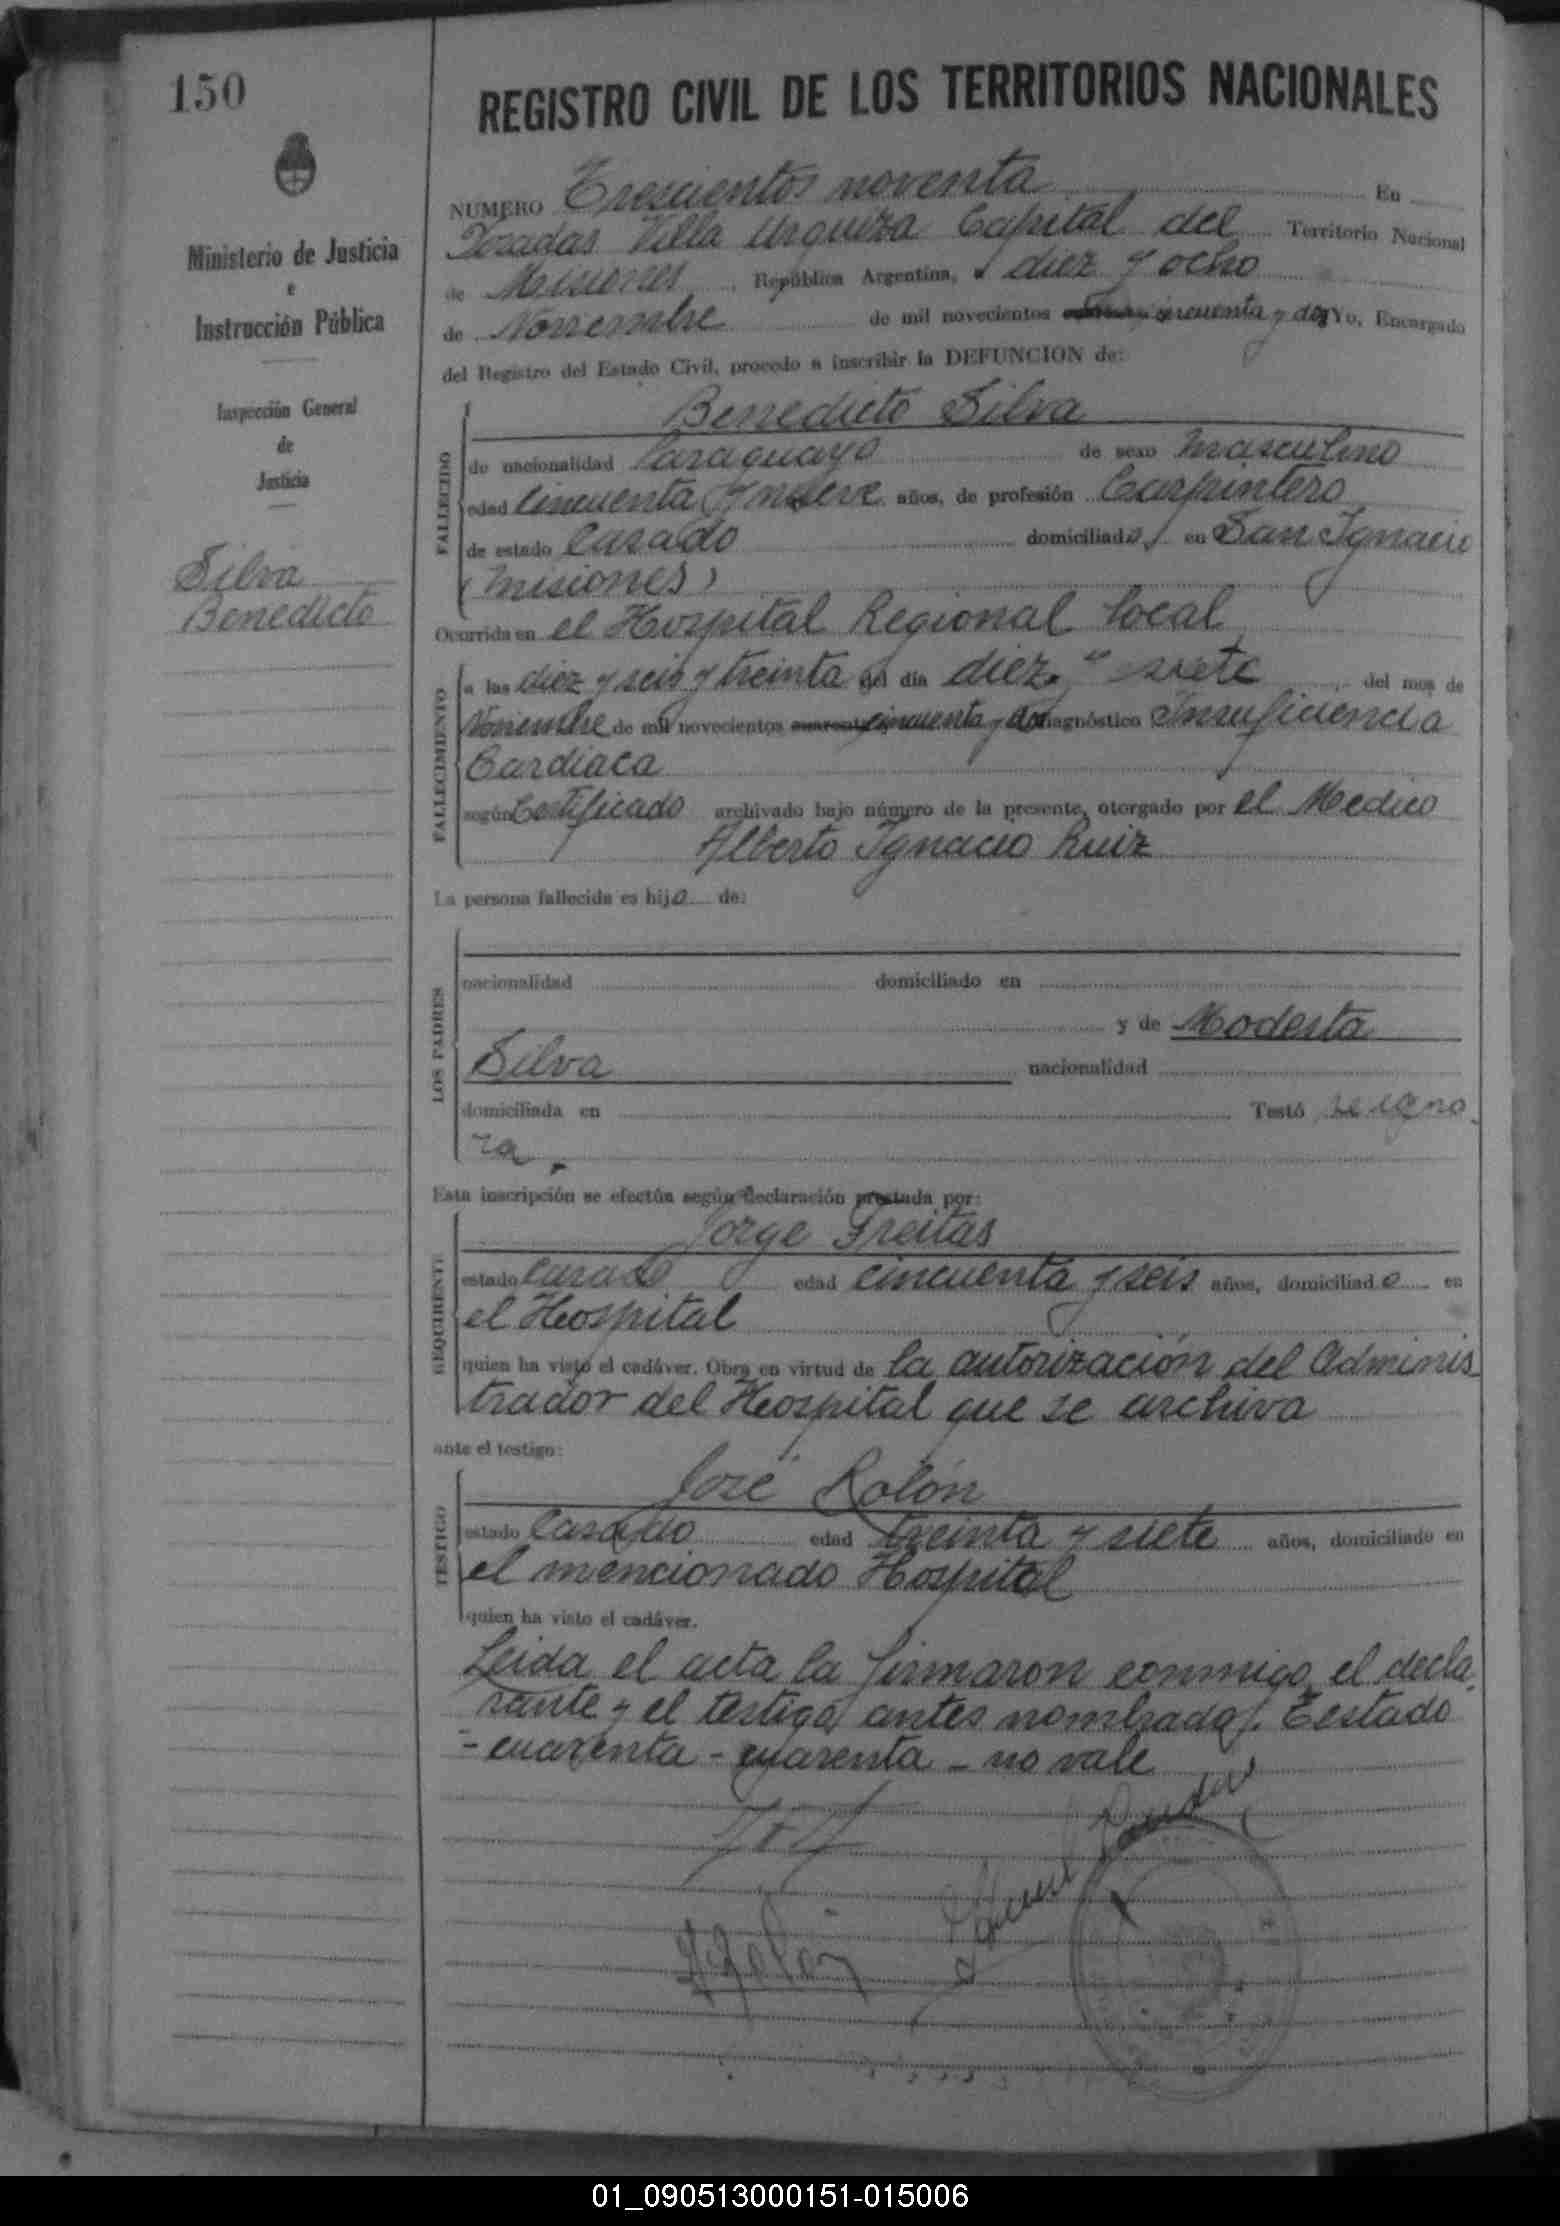 150
REGISTRO CIVIL DE LOS TERRITORIOS NACIONALES
Ministerio de Justicia
e
Instrucción Pública
Inspección General
de
Justicia
Silva
Benedicto
NUMERO Trescientos noventa En
Posadas Villa Urquiza Capital del Territorio Nacional
de Misiones, República Argentina, a diez y ocho
de Noviembre de mil novecientos cincuenta y dos Yo, Encargado
del Registro del Estado Civil, procedo a inscribir la DEFUNCION de:
FALLECIDO
Benedicto Silva
de nacionalidad Paraguayo de sexo masculino
edad cincuenta y nueve años, de profesión Carpintero
de estado Casado domiciliado en San Ignacio
(Misiones)
Ocurrida en el Hospital Regional local
FALLECIMIENTO
a las diez y seis y treinta del día diez y siete del mes de
Noviembre de mil novecientos cuarenta cincuenta y dos diagnóstico Insuficiencia
Cardiaca
según Certificado archivado bajo número de la presente, otorgado por el Medico
Alberto Ignacio Ruiz
La persona fallecida es hijo de:
LOS PADRES
nacionalidad domiciliado en
y de Modesta
Silva nacionalidad
domiciliada en Testó se igno
ra.
Esta inscripción se efectúa según declaración prestada por:
REQUIRENTE
Jorge Freitas
estado Casado edad cincuenta y seis años, domiciliado en
el Hospital
quien ha visto el cadáver. Obra en virtud de la autorización del Adminis
trador del Hospital que se archiva
ante el testigo:
TESTIGO
José Rolón
estado Casado edad treinta y siete años, domiciliado en
el mencionado Hospital
quien ha visto el cadáver.
Leida el acta la firmaron conmigo el decla
rante y el testigo antes nombrado. Testado
- cuarenta - cuarenta - no vale
01_090513000151-015006